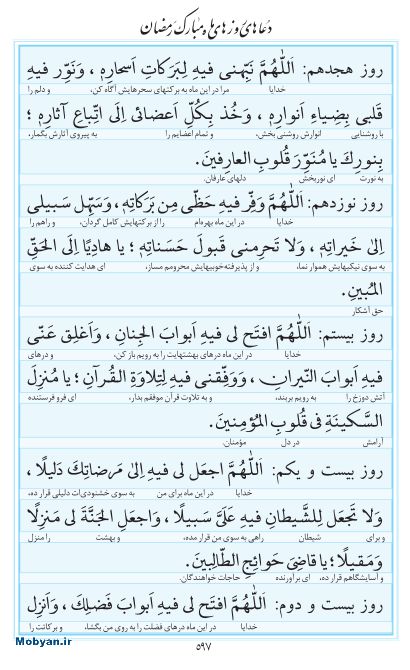 دعاهای روزهای ماه مبارک رمضان
روز هجدهم: اَللّٰهُمَّ نَبِّهنی فیهِ لِبَرَکاتِ اَسحارِهٖ ، وَنَوِّر فیهِ
خدایا مرا در این ماه به برکتهای سحرهایش آگاه کن، و دلم را
قَلبی بِضِیاءِ اَنوارِهٖ ، وَخُذ بِکُلِّ اَعضائی اِلَی اتِّباعِ آثارِهٖ ؛
با روشنایی انوارش روشنی بخش، و تمام اعضایم را به پیروی آثارش بگمار،
بِنورِکَ یا مُنَوِّرَ قُلوبِ العارِفینَ.
به نورت ای نوربخش دلهای عارفان.
روز نوزدهم: اَللّٰهُمَّ وَفِّر فیهِ حَظّی مِن بَرَکاتِهٖ، وَسَهِّل سَبیلی
خدایا در این ماه بهره‌ام را از برکتهایش کامل گردان، و راهم را
اِلیٰ خَیراتِهٖ ، وَلا تَحرِمنی قَبولَ حَسَناتِهٖ ؛ یا هادِیًا اِلَی الحَقِّ
به سوی نیکیهایش هموار نما، و از پذیرفته‌خوبیهایش محرومم مساز، ای هدایت کننده به سوی
المُبینِ.
حق آشکار
روز بیستم: اَللّٰهُمَّ افتَح لی فیهِ اَبوابَ الجِنانِ ، وَاَغلِق عَنّی
خدایا در این ماه درهای بهشتهایت را به رویم باز کن، و درهای
فیهِ اَبوابَ النّیرانِ ، وَوَفِّقنی فیهِ لِتِلاوَةِ القُرآنِ ؛ یا مُنزِلَ
آتش دوزخ را به رویم بربند، و به تلاوت قرآن موفقم بدار، ای فرو فرستنده
السَّکینَةِ فی قُلوبِ المُؤمِنینَ.
آرامش در دل مؤمنان.
روز بیست و یکم: اَللّٰهُمَّ اجعَل لی فیهِ اِلیٰ مَرضاتِکَ دَلیلًا ،
خدایا در این ماه برای من به سوی خشنودیات دلیلی قرار ده،
وَلا تَجعَل لِلشَّیطانِ فیهِ عَلَیَّ سَبیلًا ، وَاجعَلِ الجَنَّةَ لی مَنزِلًا
و برای شیطان راهی به سوی من قرار مده، و بهشت را منزل
وَمَقیلًا ؛ یا قاضِیَ حَوائِجِ الطّالِبینَ.
و آسایشگاهم قرار ده، ای برآورنده حاجات خواهندگان.
روز بیست و دوم: اَللّٰهُمَّ افتَح لی فیهِ اَبوابَ فَضلِکَ ، وَاَنزِل
خدایا در این ماه درهای فضلت را به روی من بگشا، و برکاتت را
۵۹۷
Mobyan.ir